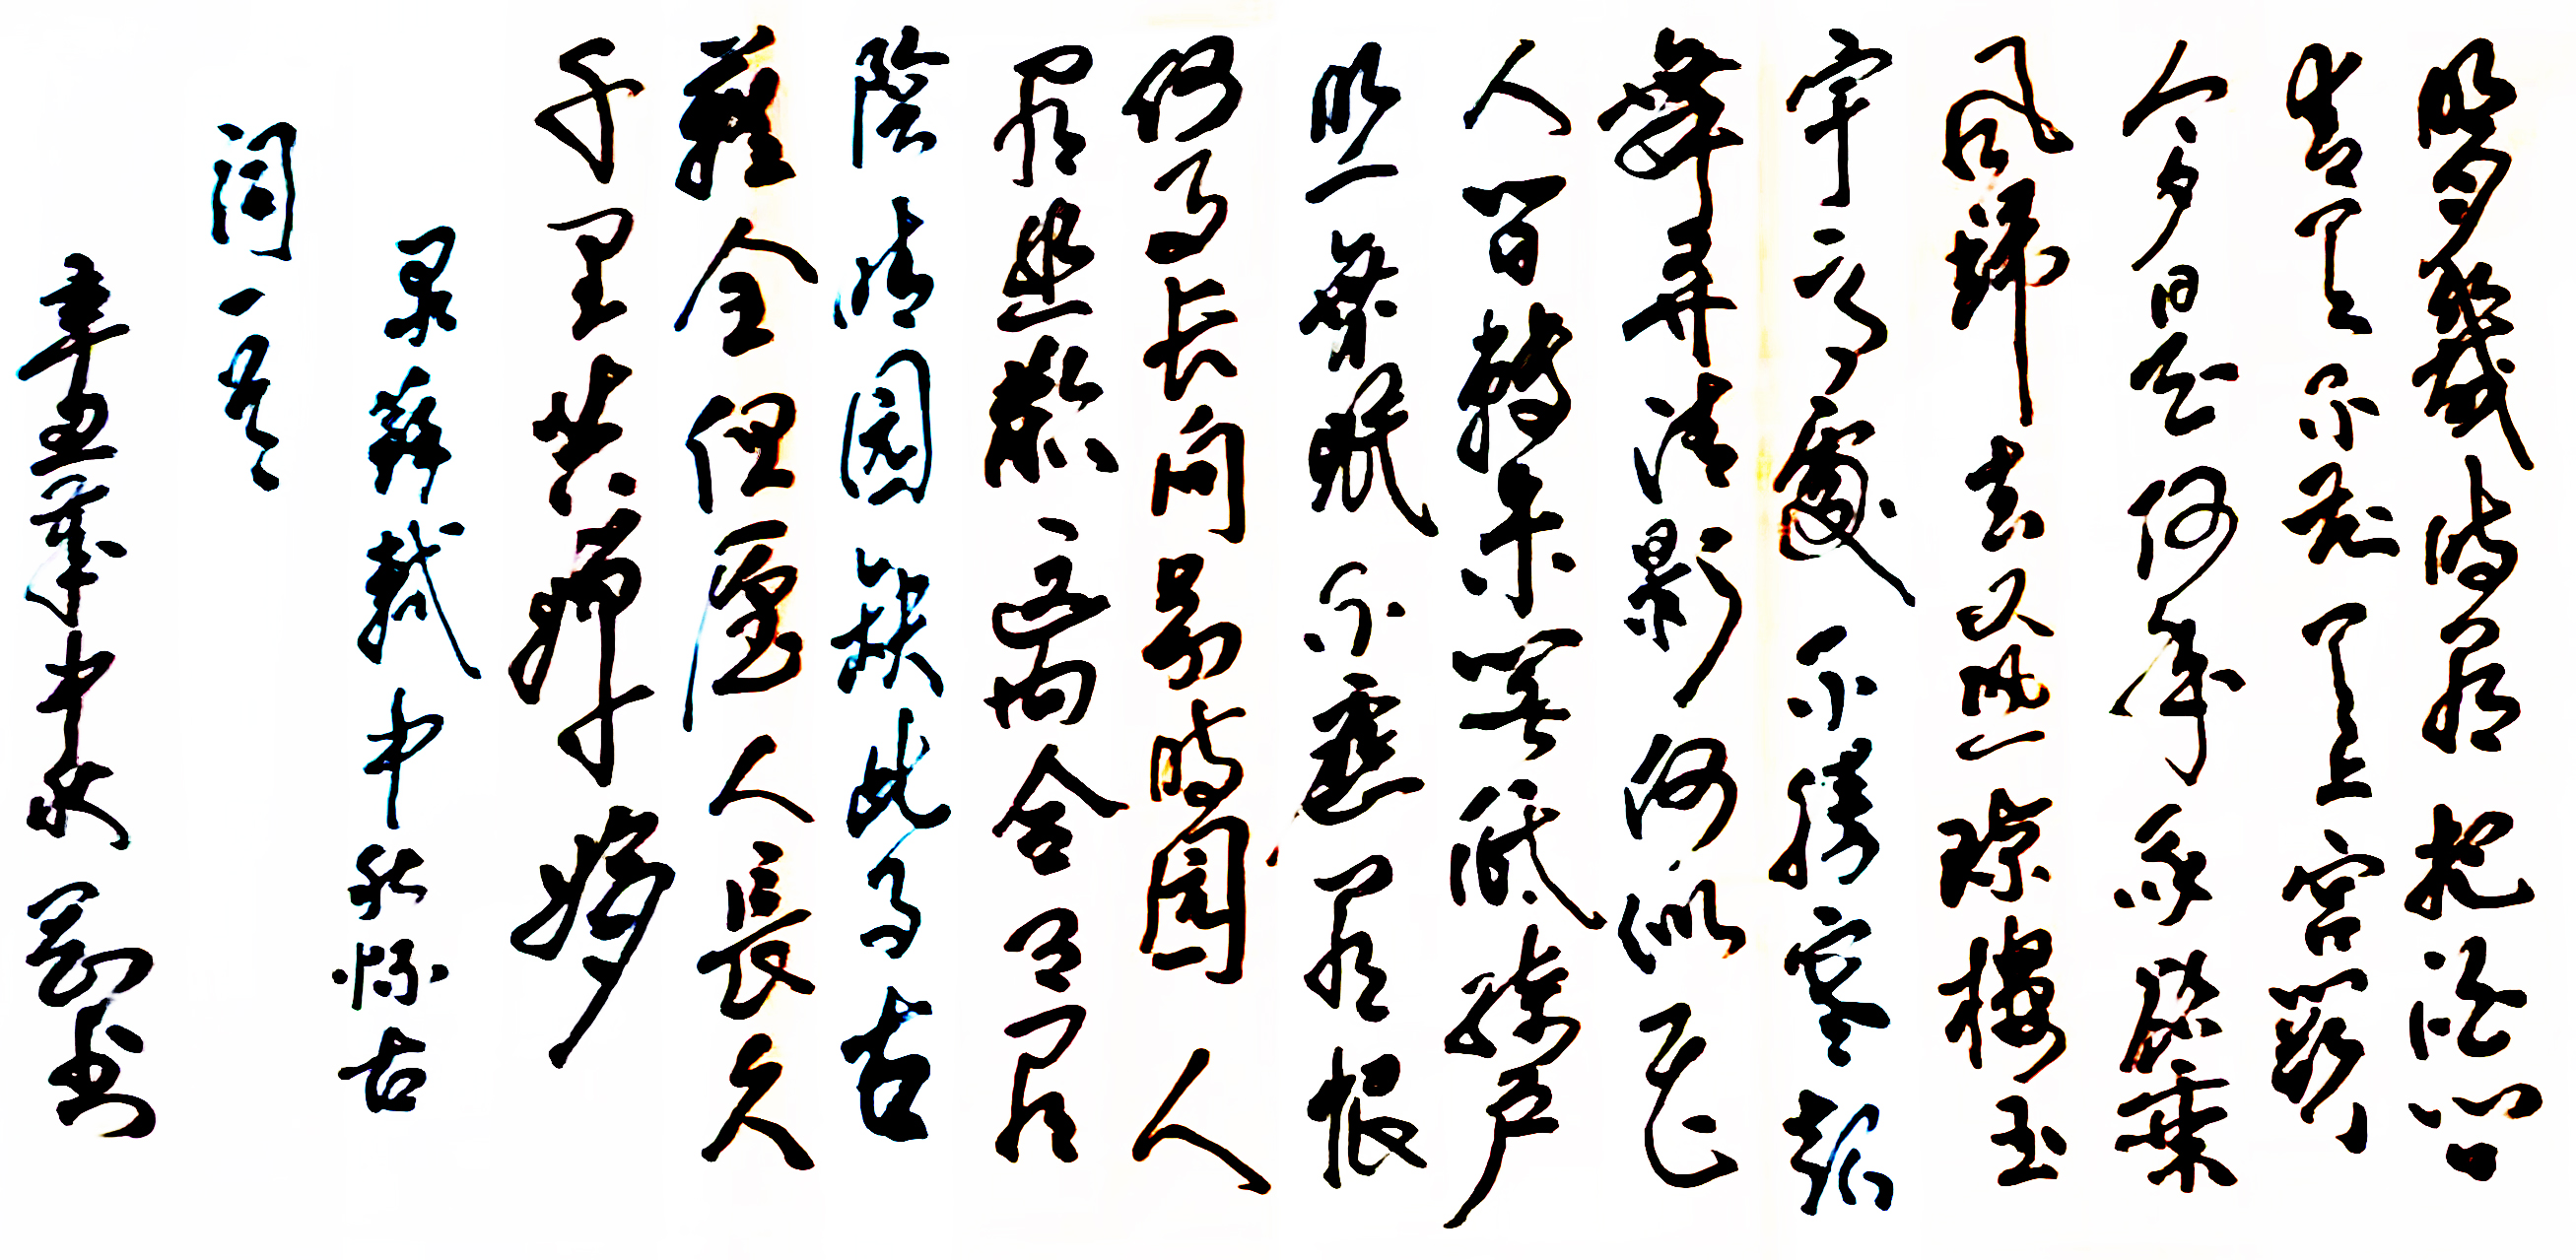 明月幾时有把酒问
青天不知天上宫阙
今夕是何年我欲乘
风歸去又恐琼樓玉
宇高處不勝寒起
舞弄清影何似在
人间轉朱阁低绮户
照無眠不應有恨
何事长向别时圆人
有悲歡离合月有
陰晴圆缺此事古
難全但愿人長久
千里共婵娟
录蘇轼中秋怀古
词一首
辛丑年中秋 书